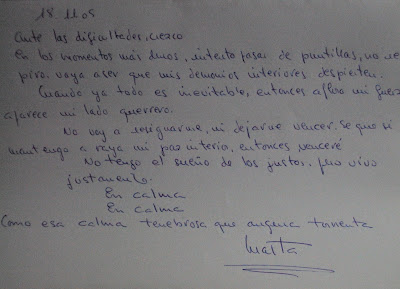 18.11.05
Ante las dificultades, crezco
En los momentos más duros, intento pasar de puntillas, no res
piro. vaya a ser que mis demonios interiores despierten.
Cuando ya todo es inevitable, entonces aflora mi fuerz
aparece mi lado guerrero.
No voy a resignarme, ni dejarme vencer. Se que si
mantengo a raya mi paz interio, entonces venceré
No tengo el sueño de los justos. pero vivo
justamente.
En calma
En calma
Como esa calma tenebrosa que augura tormenta
Marta